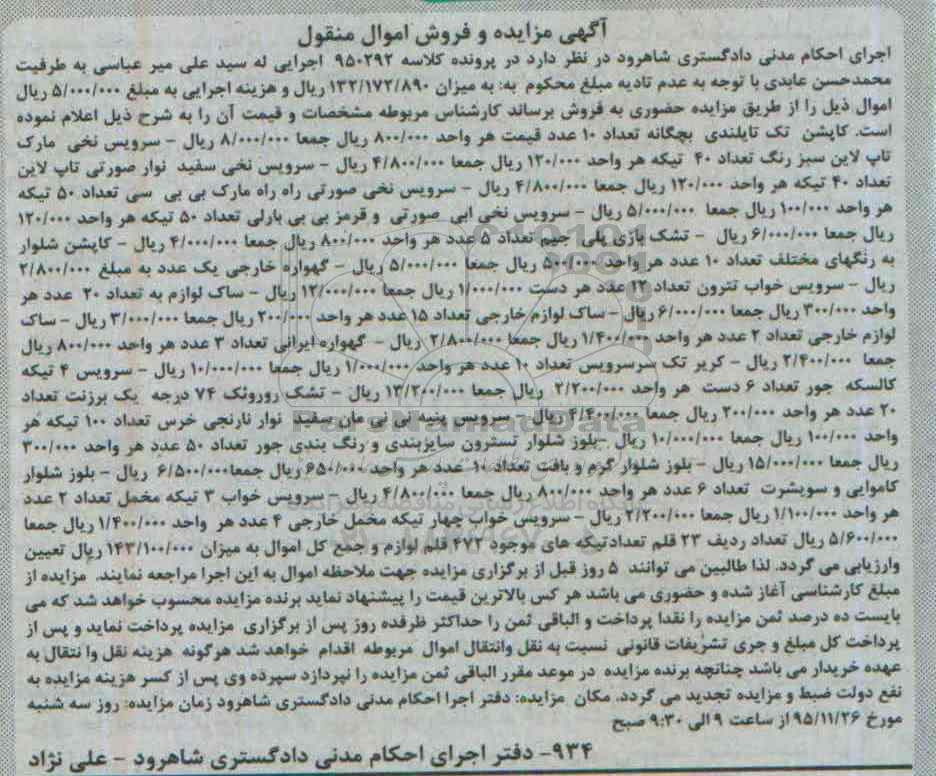 آگهی مزایده و فروش اموال منقول
اجرای احکام مدنی دادگستری شاهرود در نظر دارد در پرونده کلاسه ۹۵۰۲۹۲ اجرایی له سید علی میر عباسی به طرفیت
محمدحسن عابدی با توجه به عدم تادیه مبلغ محکوم به: به میزان ۱۳۲/۱۷۲/۸۹۰ ریال و هزینه اجرایی به مبلغ ۵/۰۰۰/۰۰۰ ریال
اموال ذیل را از طریق مزایده حضوری به فروش برساند کارشناس مربوطه مشخصات و قیمت آن را به شرح ذیل اعلام نموده
است. کاپشن تک تایلندی بچگانه تعداد ۱۰ عدد قیمت هر واحد ۸۰۰/۰۰۰ ریال جمعا ۸/۰۰۰/۰۰۰ ریال – سرویس نخی مارک
تاپ لاین سبز رنگ تعداد ۴۰ تیکه هر واحد ۱۲۰/۰۰۰ ریال جمعا ۴/۸۰۰/۰۰۰ ریال – سرویس نخی سفید نوار صورتی تاپ لاین
تعداد ۴۰ تیکه هر واحد ۱۲۰/۰۰۰ ریال جمعا ۴/۸۰۰/۰۰۰ ریال – سرویس نخی صورتی راه راه مارک بی بی سی تعداد ۵۰ تیکه
هر واحد ۱۰۰/۰۰۰ ریال جمعا ۵/۰۰۰/۰۰۰ ریال – سرویس نخی ابی صورتی و قرمز بی بی بارلی تعداد ۵۰ تیکه هر واحد ۱۲۰/۰۰۰
ریال جمعا ۶/۰۰۰/۰۰۰ ریال – تشک بازی پلی جیم تعداد ۵ عدد هر واحد ۸۰۰/۰۰۰ ریال جمعا ۴/۰۰۰/۰۰۰ ریال – کاپشن شلوار
به رنگهای مختلف تعداد ۱۰ عدد هر واحد ۵۰۰/۰۰۰ ریال جمعا ۵/۰۰۰/۰۰۰ ریال – گهواره خارجی یک عدد به مبلغ ۲/۸۰۰/۰۰۰
ریال – سرویس خواب تترون تعداد ۱۲ عدد هر دست ۱/۰۰۰/۰۰۰ ریال جمعا ۱۲/۰۰۰/۰۰۰ ریال – ساک لوازم به تعداد ۲۰ عدد هر
واحد ۳۰۰/۰۰۰ ریال جمعا ۶/۰۰۰/۰۰۰ ریال – ساک لوازم خارجی تعداد ۱۵ عدد هر واحد ۲۰۰/۰۰۰ ریال جمعا ۳/۰۰۰/۰۰۰ ریال – ساک
لوازم خارجی تعداد ۲ عدد هر واحد ۱/۴۰۰/۰۰۰ ریال جمعا ۲/۸۰۰/۰۰۰ ریال – گهواره ایرانی تعداد ۳ عدد هر واحد ۸۰۰/۰۰۰ ریال
جمعا ۲/۴۰۰/۰۰۰ ریال – کریر تک سرسرویس تعداد ۱۰ عدد هر واحد ۱/۰۰۰/۰۰۰ ریال جمعا ۱۰/۰۰۰/۰۰۰ ریال – سرویس ۴ تیکه
کالسکه جور تعداد ۶ دست هر واحد ۲/۲۰۰/۰۰۰ ریال جمعا ۱۳/۲۰۰/۰۰۰ ریال – تشک روروئک ۷۴ درجه یک برزنت تعداد
۲۰ عدد هر واحد ۲۰۰/۰۰۰ ریال جمعا ۴/۴۰۰/۰۰۰ ریال – سرویس پنبه ای نی مان سفید نوار نارنجی خرس تعداد ۱۰۰ تیکه هر
واحد ۱۰۰/۰۰۰ ریال جمعا ۱۰/۰۰۰/۰۰۰ ریال –بلوز شلوار تسترون سایزبندی و رنگ بندی جور تعداد ۵۰ عدد هر واحد ۳۰۰/۰۰۰
ریال جمعا ۱۵/۰۰۰/۰۰۰ ریال – بلوز شلوار گرم و بافت تعداد ۱۰ عدد هر واحد ۶۵۰/۰۰۰ ریال جمعا ۶/۵۰۰/۰۰۰ ریال – بلوز شلوار
کاموایی و سویشرت تعداد ۶ عدد هر واحد ۸۰۰/۰۰۰ ریال جمعا ۴/۸۰۰/۰۰۰ ریال – سرویس خواب ۳ تیکه مخمل تعداد ۲ عدد
هر واحد ۱/۱۰۰/۰۰۰ ریال جمعا ۲/۲۰۰/۰۰۰ ریال – سرویس خواب چهار تیکه مخمل خارجی ۴ عدد هر واحد ۱/۴۰۰/۰۰۰ ریال جمعا
۵/۶۰۰/۰۰۰ ریال تعداد ردیف ۲۳ قلم تعدادتیکه های موجود ۴۷۳ قلم لوازم و جمع کل اموال به میزان ۱۴۳/۱۰۰/۰۰۰ ریال تعیین
وارزیابی می گردد. لذا طالبین می توانند ۵ روز قبل از برگزاری مزایده جهت ملاحظه اموال به این اجرا مراجعه نمایند. مزایده از
مبلغ کارشناسی آغاز شده و حضوری می باشد هر کس بالاترین قیمت را پیشنهاد نماید برنده مزایده محسوب خواهد شد که می
بایست ده درصد ثمن مزایده را نقدا پرداخت و الباقی ثمن را حداکثر ظرفده روز پس از برگزاری مزایده پرداخت نماید و پس از
پرداخت کل مبلغ و جری تشریفات قانونی نسبت به نقل وانتقال اموال مربوطه اقدام خواهد شد هرگونه هزینه نقل وا نتقال به
عهده خریدار می باشد چنانچه برنده مزایده در موعد مقرر الباقی ثمن مزایده را نپردازد سپرده وی پس از کسر هزینه مزایده به
نفع دولت ضبط و مزایده تجدید می گردد. مکان مزایده: دفتر اجرا احکام مدنی دادگستری شاهرود زمان مزایده: روز سه شنبه
مورخ ۹۵/۱۱/۲۶ از ساعت ۹ الی ۹:۳۰ صبح
۹۳۴– دفتر اجرای احکام مدنی دادگستری شاهرود – علی نژاد